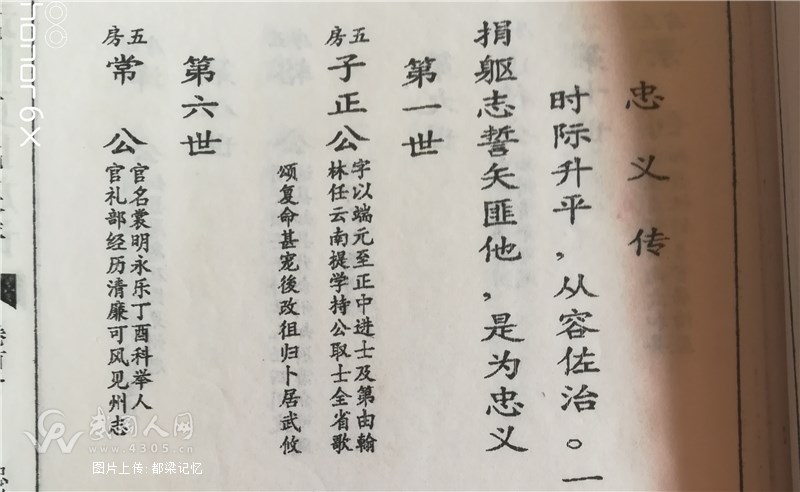 忠义传
时际升平，从容佐治。一
捐躯志誓矢匪他，是为忠义
第一世
五房
子正公
字以端元至正中进士及第由翰
林任云南提学持公取士全省歌
颂复命甚宠後改徂归卜居武攸
第六世
五房
常公
官名裳明永乐丁酉科举人
官礼部经历清廉可风见州志
honor 6x
武冈人网
www.4305.cn
图片上传:都梁记忆